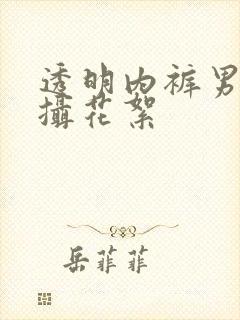 透明内裤男
摄花絮
岳菲菲